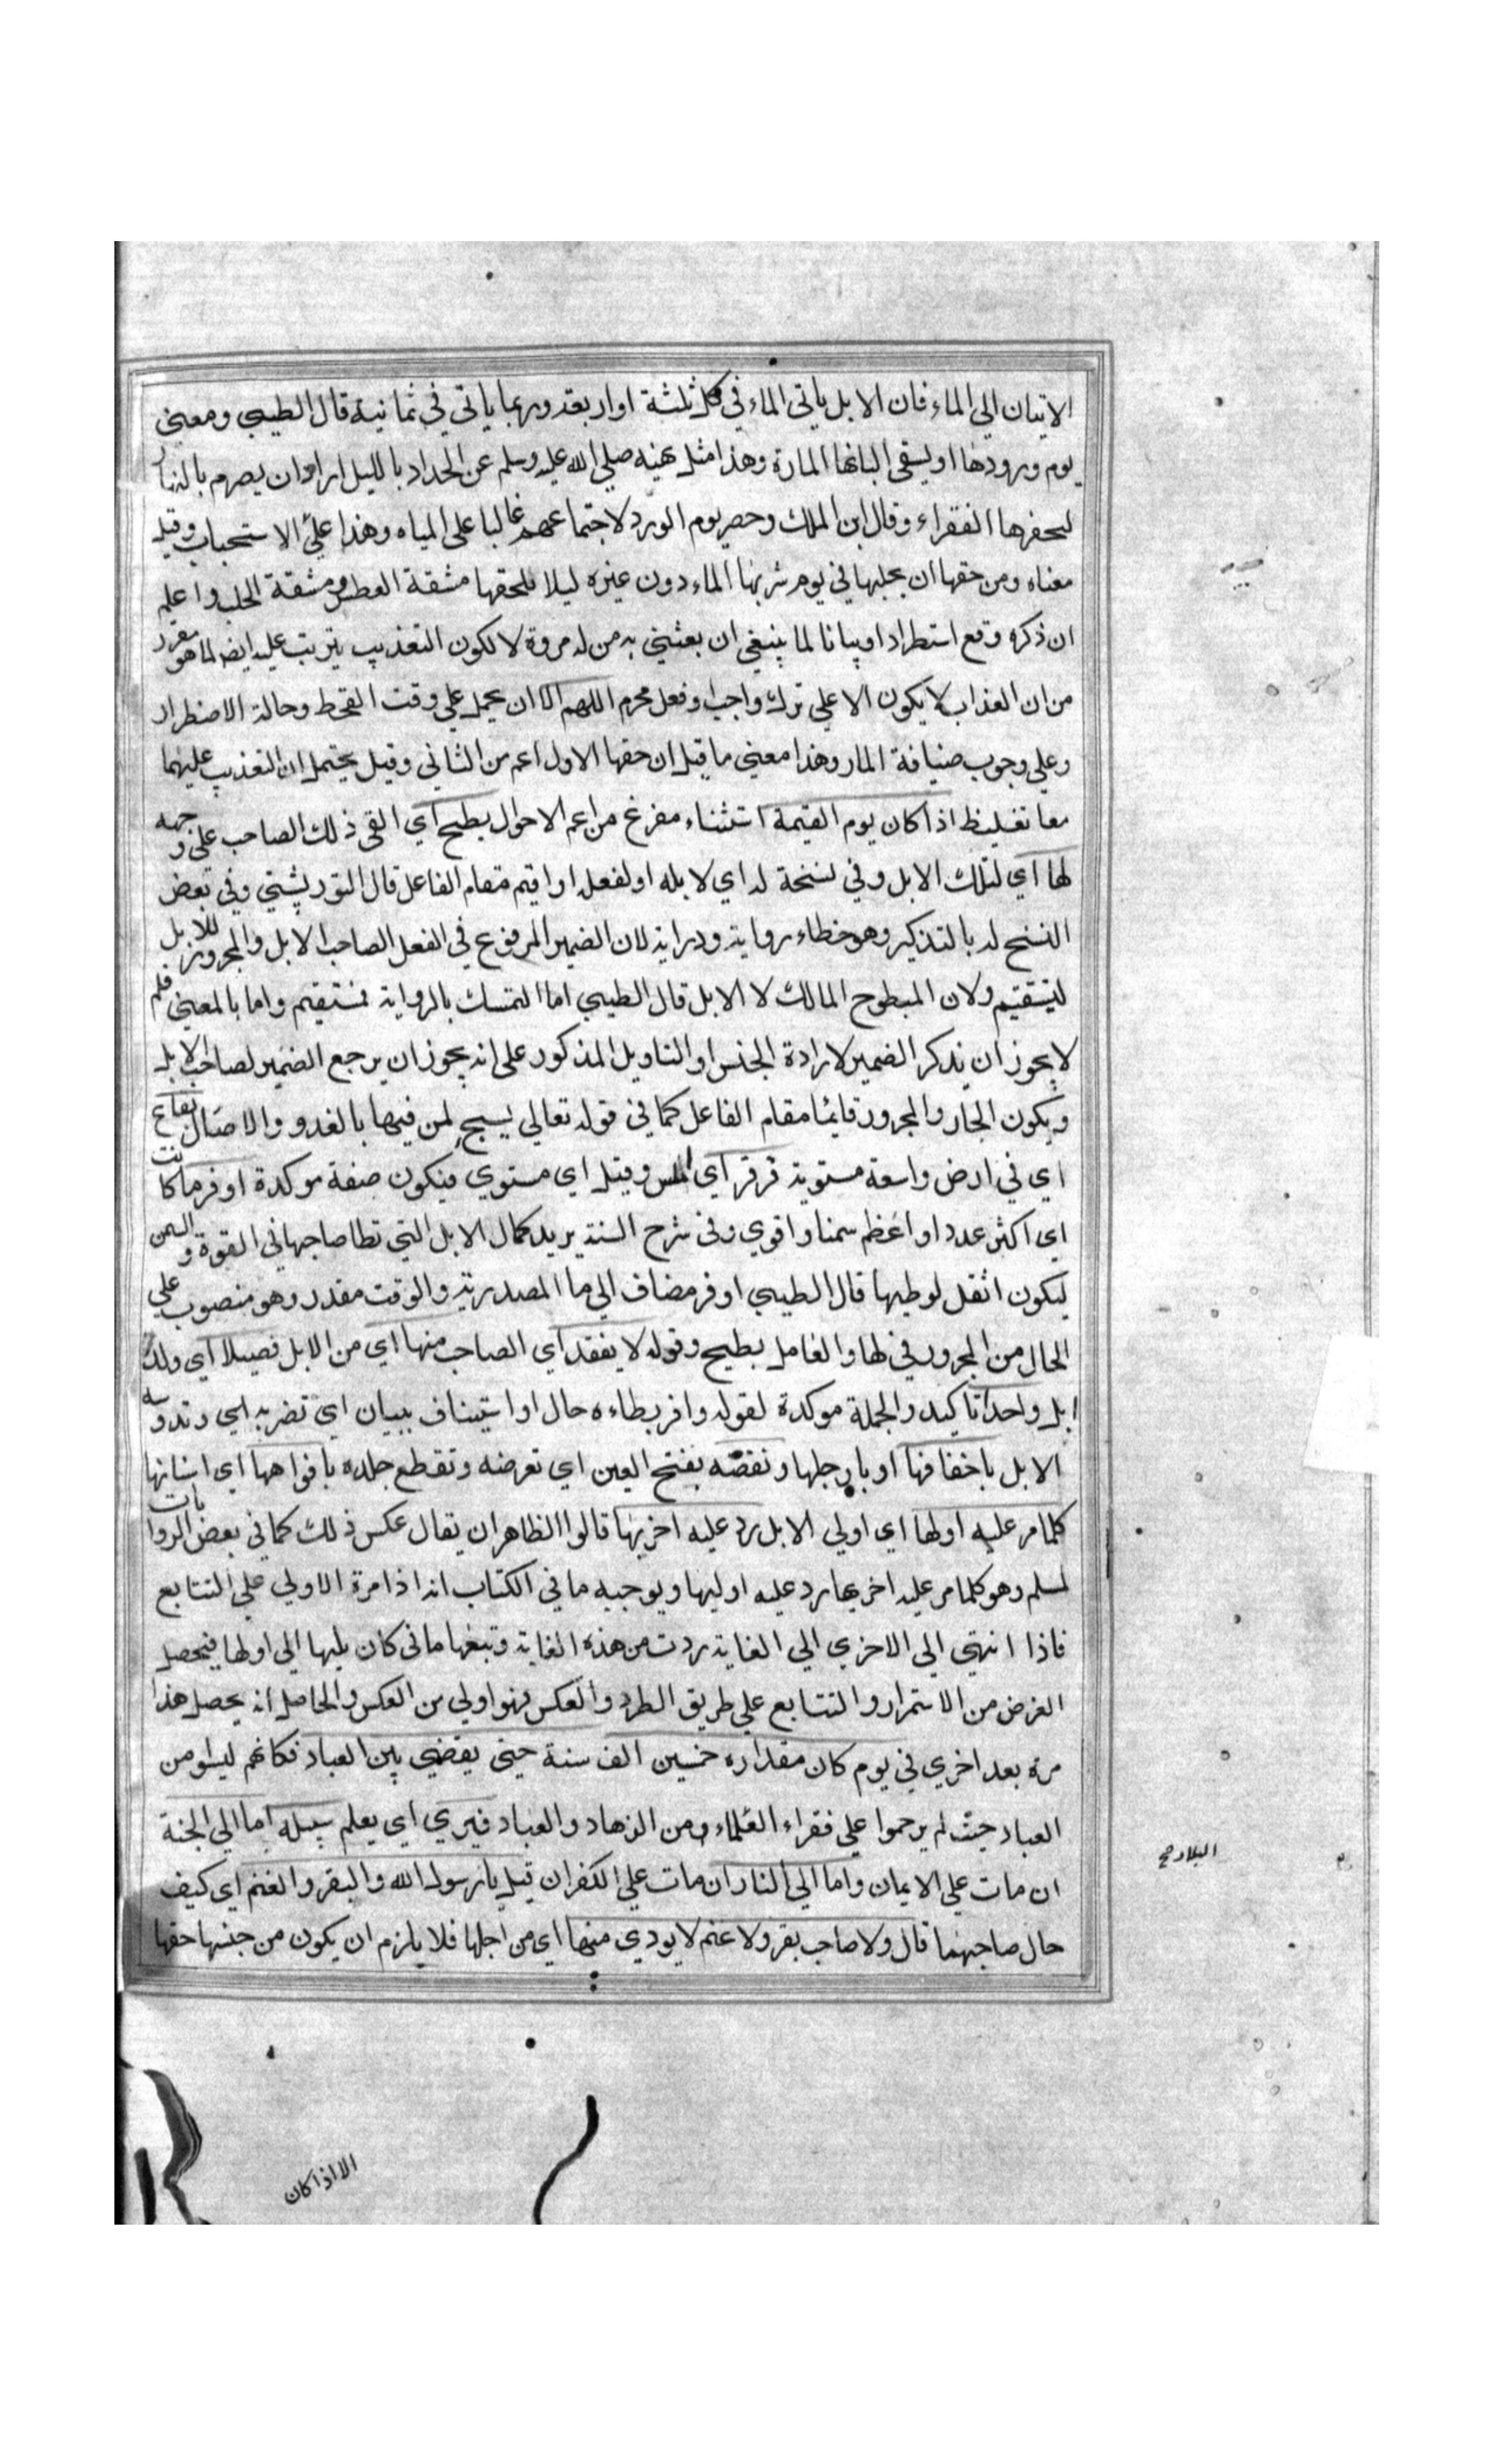 الاتيان الي الماء فان الابل ياتي الماء في كل ثلثة او اربعة وربما ياتي في ثمانية قال الطيبي ومعني
يوم ورودها او يسقي البانها المارة وهذا مثل نهيه صلي الله عليه وسلم عن الجداد بالليل اراد ان يصرم بالنهار
ليحضرها الفقراء وقال ابن الملك وحصر يوم الورد لاجتماعهم غالبا علي المياه وهذا علي الاستحباب وقيل
معناه ومن حقها ان يحلبها في يوم شربها الماء دون غيره ليلا يلحقها مشقة العطش ومشقة الحلب واعلم
ان ذكره وقع استطرادا وبيانا لما ينبغي ان يعتني به من له مروة لا لكون التعذيب يترتب عليه ايضا لما هو مقرر
من ان العذاب لا يكون الا علي ترك واجب او فعل محرم اللهم الا ان يحمل علي وقت القحط وحالة الاضطرار
وعلي وجوب ضيافة المار وهذا معني ما قيل ان حقها الاول اعم من الثاني وقيل يحتمل ان التعذيب عليهما
معا تغليظ اذا كان يوم القيمة استثناء مفرغ من اعم الاحوال بطح اي القي ذلك الصاحب علي وجهه
لها اي لتلك الابل وفي نسخة له اي لابله او لفعله او اقيم مقام الفاعل قال التوربشتي وفي بعض
النسخ له بالتذكير وهو خطاء رواية ودراية لان الضمير المرفوع في الفعل لصاحب الابل والمجرور للابل
ليستقيم ولان المبطوح المالك لا الابل قال الطيبي اما التمسك بالرواية فمستقيم واما بالمعني فلم
لا يجوز ان يذكر الضمير لارادة الجنس او التاويل المذكور علي انه يجوز ان يرجع الضمير لصاحب الابل
ويكون الجار والمجرور قايما مقام الفاعل كما في قوله تعالي يسبح لمن فيها بالغدو والاصال بقاع
اي في ارض واسعة مستوية قرقر اي املس وقيل اي مستوي فيكون صفة موكدة اوفر ما كانت
اي اكثر عددا او اعظم سمنا واقوي وفي شرح السنة يريد كمال الابل التي تطا صاحبها في القوة والسمن
ليكون اثقل لوطيها قال الطيبي اوفر مضاف الي ما المصدرية والوقت مقدر وهو منصوب علي
الحال من المجرور في لها والعامل بطح وقوله لا يفقد اي الصاحب منها اي من الابل فصيلا اي ولد
ابل واحدا تاكيد والجملة موكدة لقوله وافر يطاءه حال او استيناف ببيان اي تضربه اي وتدوسه
الابل باخفافها او بارجلها وتعضه بفتح العين اي تعرضه وتقطع جلده بافواهها اي اسنانها
كلما مر عليه اولها اي اولي الابل رد عليه اخريها قالوا الظاهر ان يقال عكس ذلك كما في بعض الروايات
لمسلم وهو كلما مر عليه اخريها رد عليه اوليها ويوجبه ما في الكتاب انه اذا مرة الاولي علي التتابع
فاذا انتهي الي الاخري الي الغاية ردت من هذه الغاية وتبعها ما في كان يليها الي اولها فيحصل
الغرض من الاستمرار والتتابع علي طريق الطرد والعكس فهو اولي من العكس والحاصل انه يحصل هذا
مرة بعد اخري في يوم كان مقداره خمسين الف سنة حتي يقضي بين العباد فكانهم ليسو من
العباد حيث لم يرحموا علي فقراء العلماء ومن الزهاد والعباد فيري اي يعلم سبيله اما الي الجنة
ان مات علي الايمان واما الي النار ان مات علي الكفران قيل يا رسول الله والبقر والغنم اي كيف
حال صاحبهما قال ولا صاحب بقر ولا غنم لا يودي منها اي من اجلها فلا يلزم ان يكون من جنسها حقها
الا اذا كان